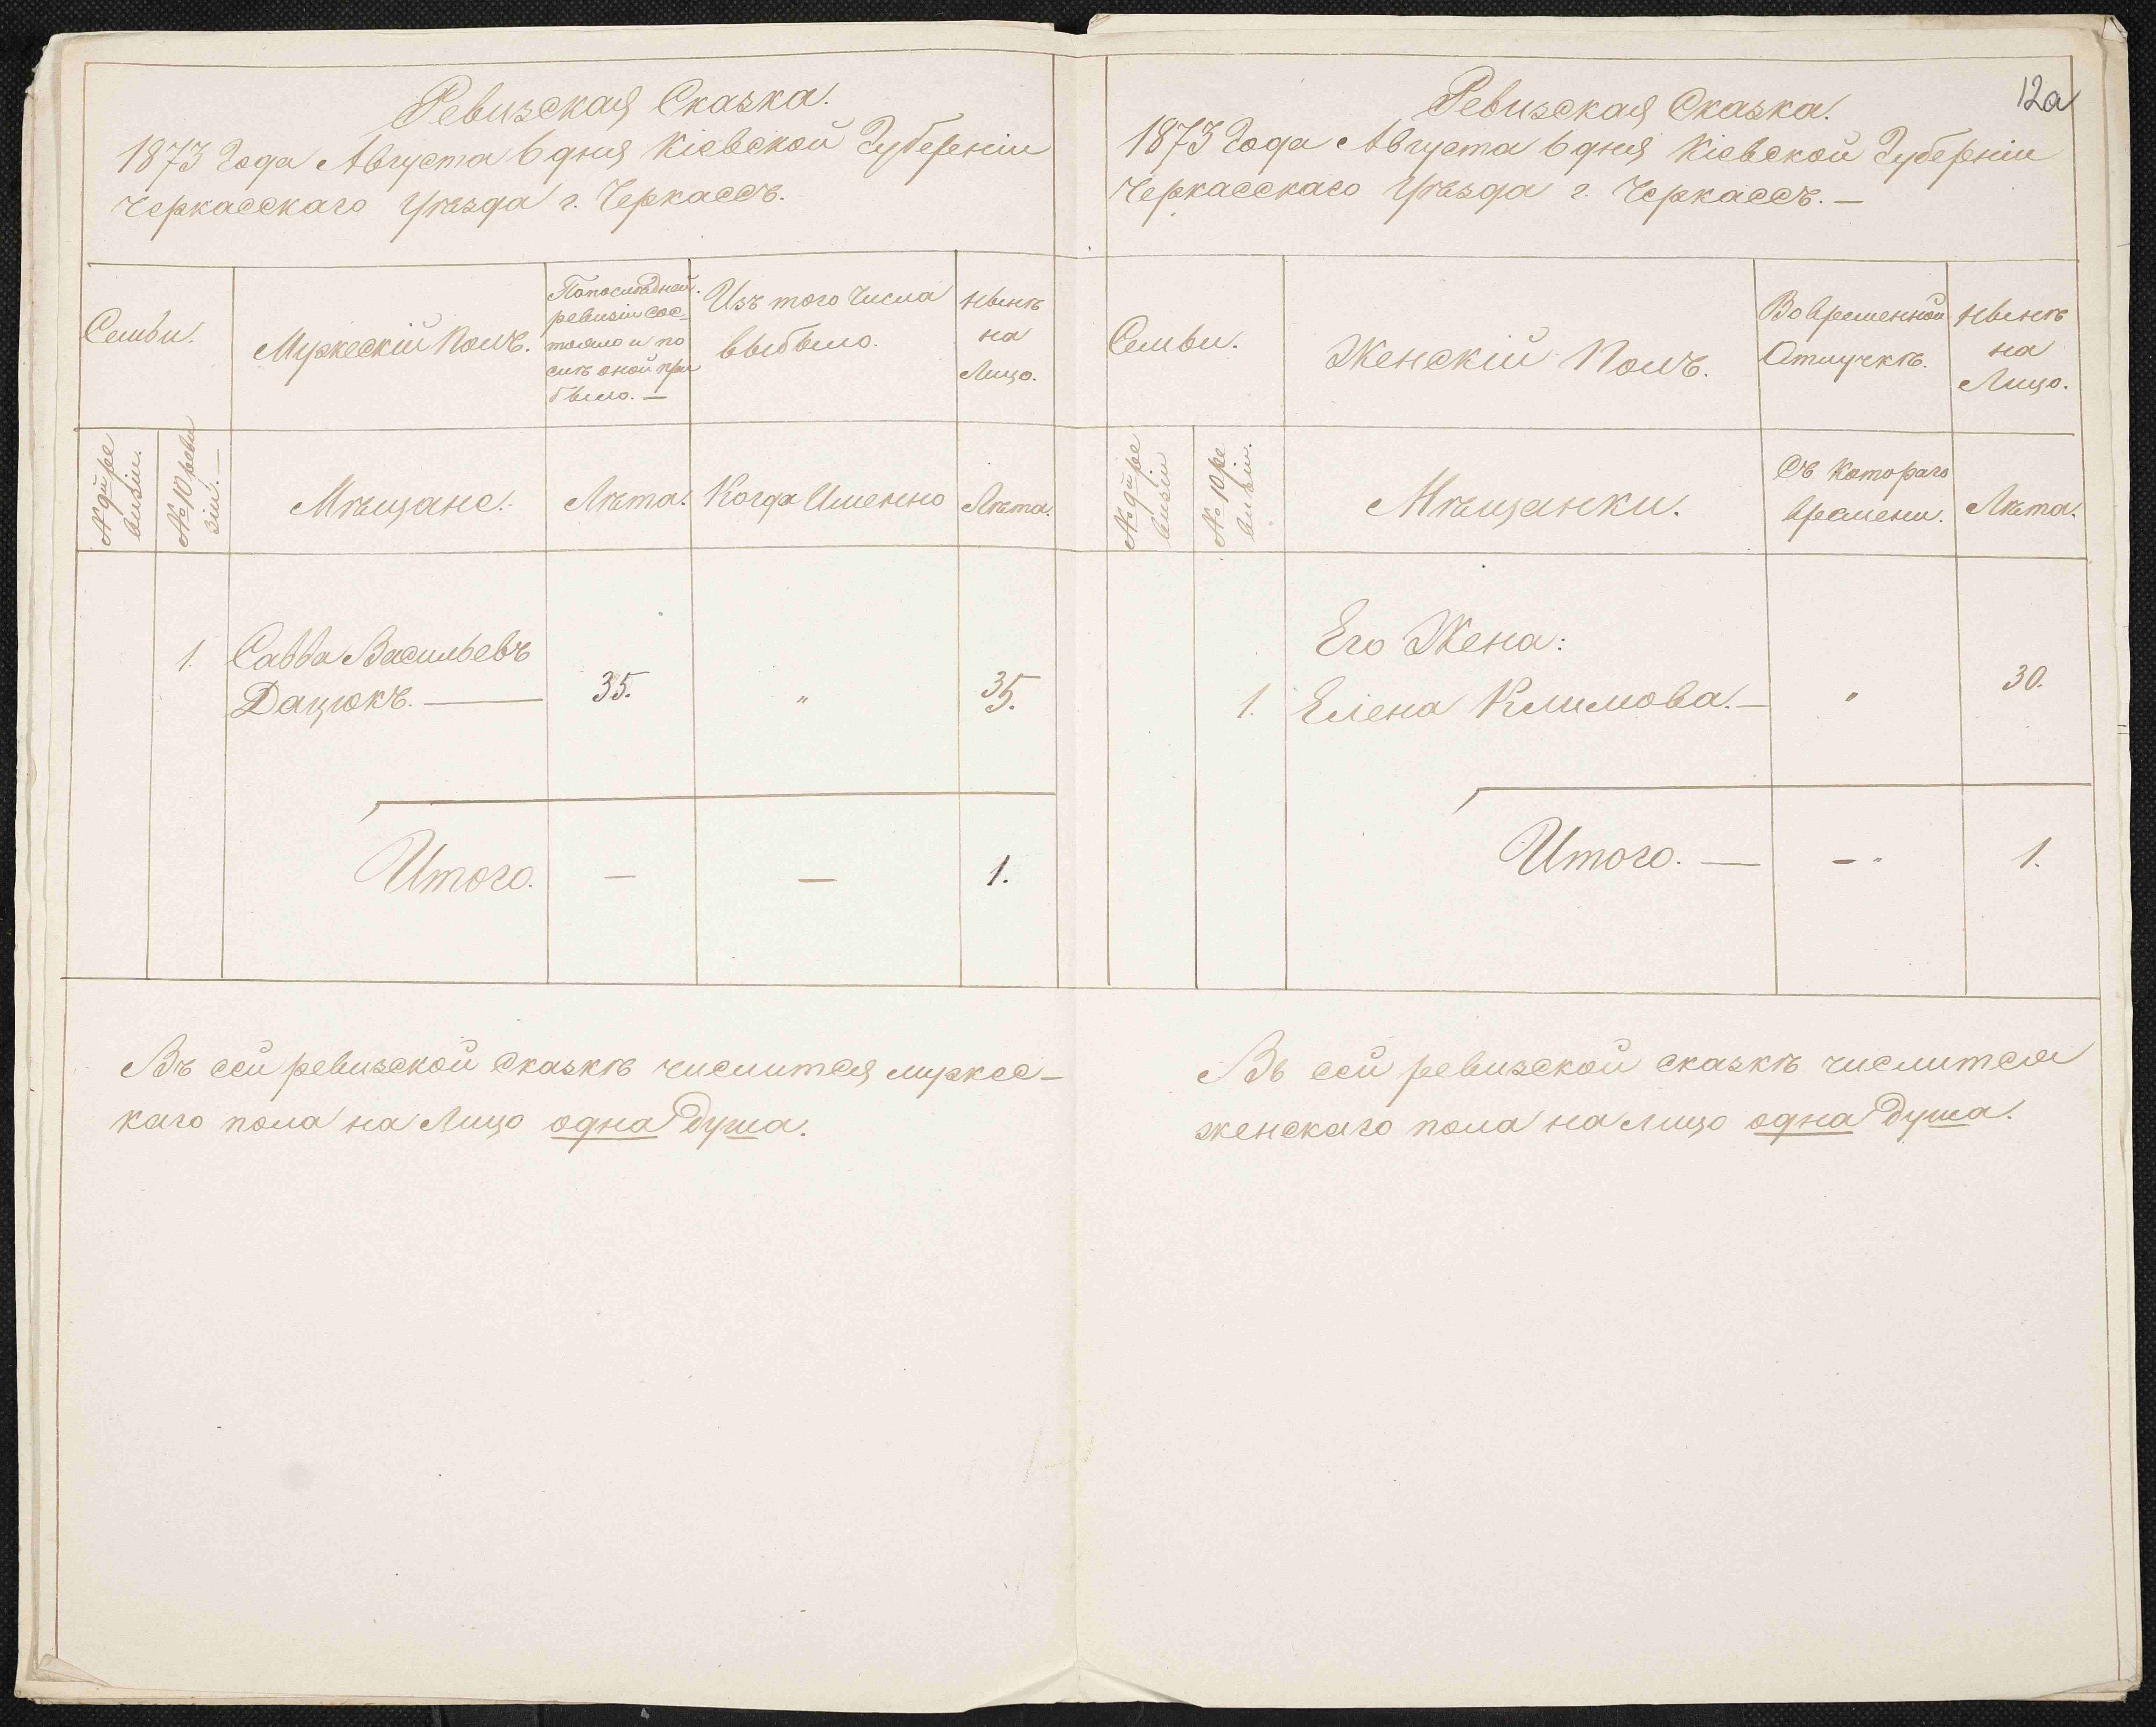 Ревизская Сказка.
1873 Года Августа 6 дня Кіевской Губерніи
Черкасскаго Уѣзда г. Черкассъ.
Семьи.
Мужескій Полъ.
По последней
ревизіи сос-
тояло и по
слѣ оной при
было. —
Изъ того Числа
выбыло.
Нынѣ
на
Лицо.
№ 9й ре
визіи.
№ 10 реви
зіи. —
Мѣщане.
Лѣта.
Когда Именно
Лѣта.
1.
Савва Васильевъ
Дацюкъ. —
35.
"
35.
Итого.
—
—
1.
Въ сей ревизской сказкѣ числится мужес-
каго пола на Лицо одна Душа.
12а
Ревизская Сказка.
1873 Года Августа 6 дня Кіевской Губерніи
Черкасскаго Уѣзда г. Черкассъ. —
Семьи.
Женскій Полъ.
Во временной
Отлучкѣ.
Нынѣ
на
Лицо.
№ 9й ре
визіи
№ 10 ре
визіи.
Мѣщанки.
Съ Котораго
времени.
Лѣта.
Его Жена:
1.
Елена Климова. —
"
30.
Итого. —
— "
1.
Въ сей ревизской сказкѣ числится
женскаго пола на лицо одна Душа.